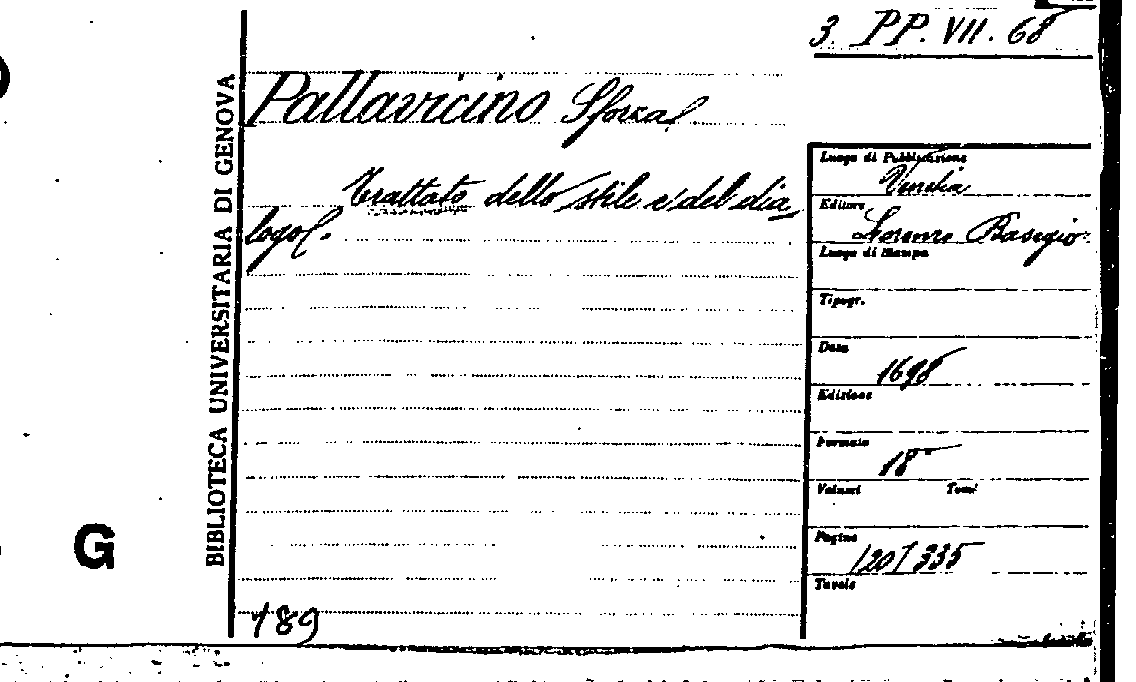 3. PP. VII. 68
Pallavicino Sforza
Trattato dello stile e del dia
logo.
BIBLIOTECA UNIVERSITARIA DI GENOVA
Luogo di Pubblicazione
Venezia
Editore
Lorenzo Basegio
Luogo di Stampa
Tipogr.
Data
1698
Edizione
Formato
18°
Volumi Tomi
Pagine
/20/ 335
Tavole
G
189